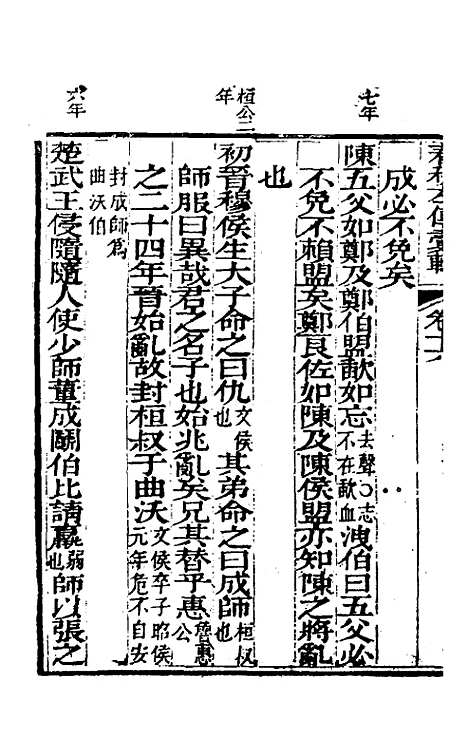 春秋左傳彙輯 卷十六
成必不免矣
七年
陳五父如鄭及鄭伯盟歃如忘去聲○志不在歃血洩伯曰五父必
不免不賴盟矣鄭良佐如陳及陳侯盟亦知陳之將亂
也
桓公二年
初晉穆侯生大子命之曰仇文侯也其弟命之曰成師桓叔也
師服曰異哉君之名子也始兆亂矣兄其替乎惠公魯惠
之二十四年晉始亂故封桓叔于曲沃文侯卒子昭侯元年危不自安
封成師為曲沃伯
六年
楚武王侵隨隨人使少師董成鬭伯比請羸弱也師以張之